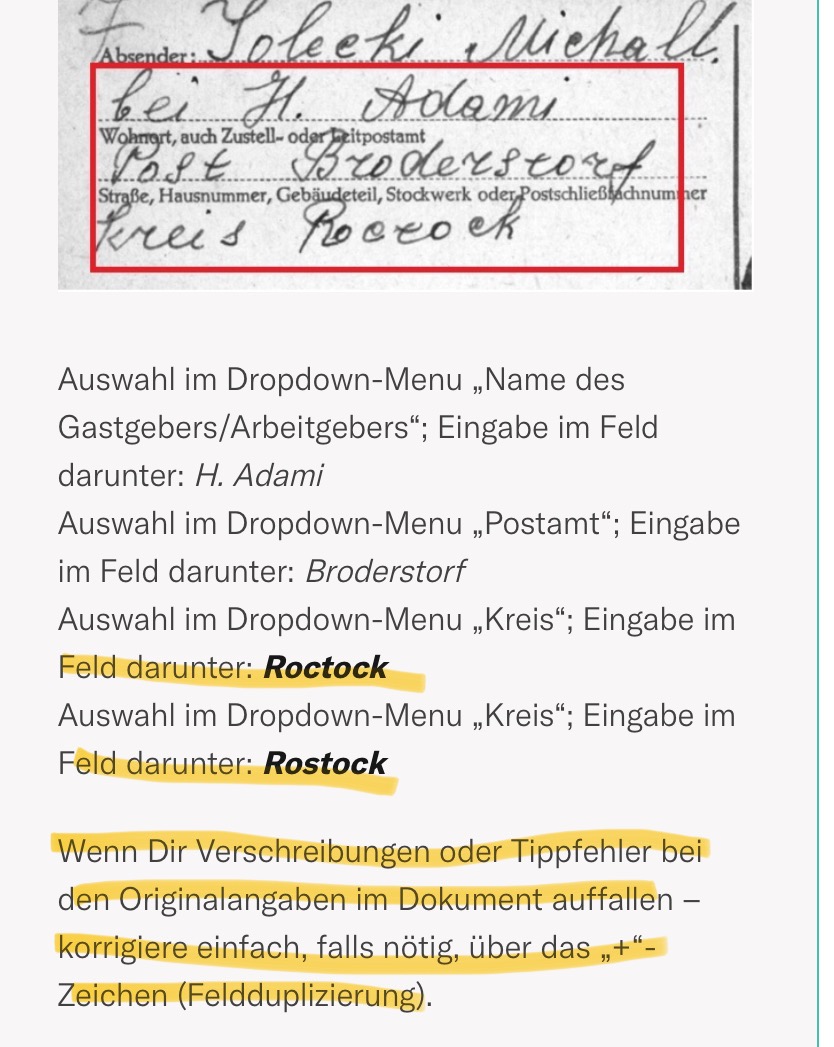 Absender: Solecki Michall.
bei H. Adami
Wohnort, auch Zustell- oder Leitpostamt
Post Broderstorf
Straße, Hausnummer, Gebäudeteil, Stockwerk oder Postschließfachnummer
Kreis Roctock
Auswahl im Dropdown-Menu „Name des
Gastgebers/Arbeitgebers“; Eingabe im Feld
darunter: H. Adami
Auswahl im Dropdown-Menu „Postamt“; Eingabe
im Feld darunter: Broderstorf
Auswahl im Dropdown-Menu „Kreis“; Eingabe im
Feld darunter: Roctock
Auswahl im Dropdown-Menu „Kreis“; Eingabe im
Feld darunter: Rostock
Wenn Dir Verschreibungen oder Tippfehler bei
den Originalangaben im Dokument auffallen –
korrigiere einfach, falls nötig, über das „+“-
Zeichen (Feldduplizierung).